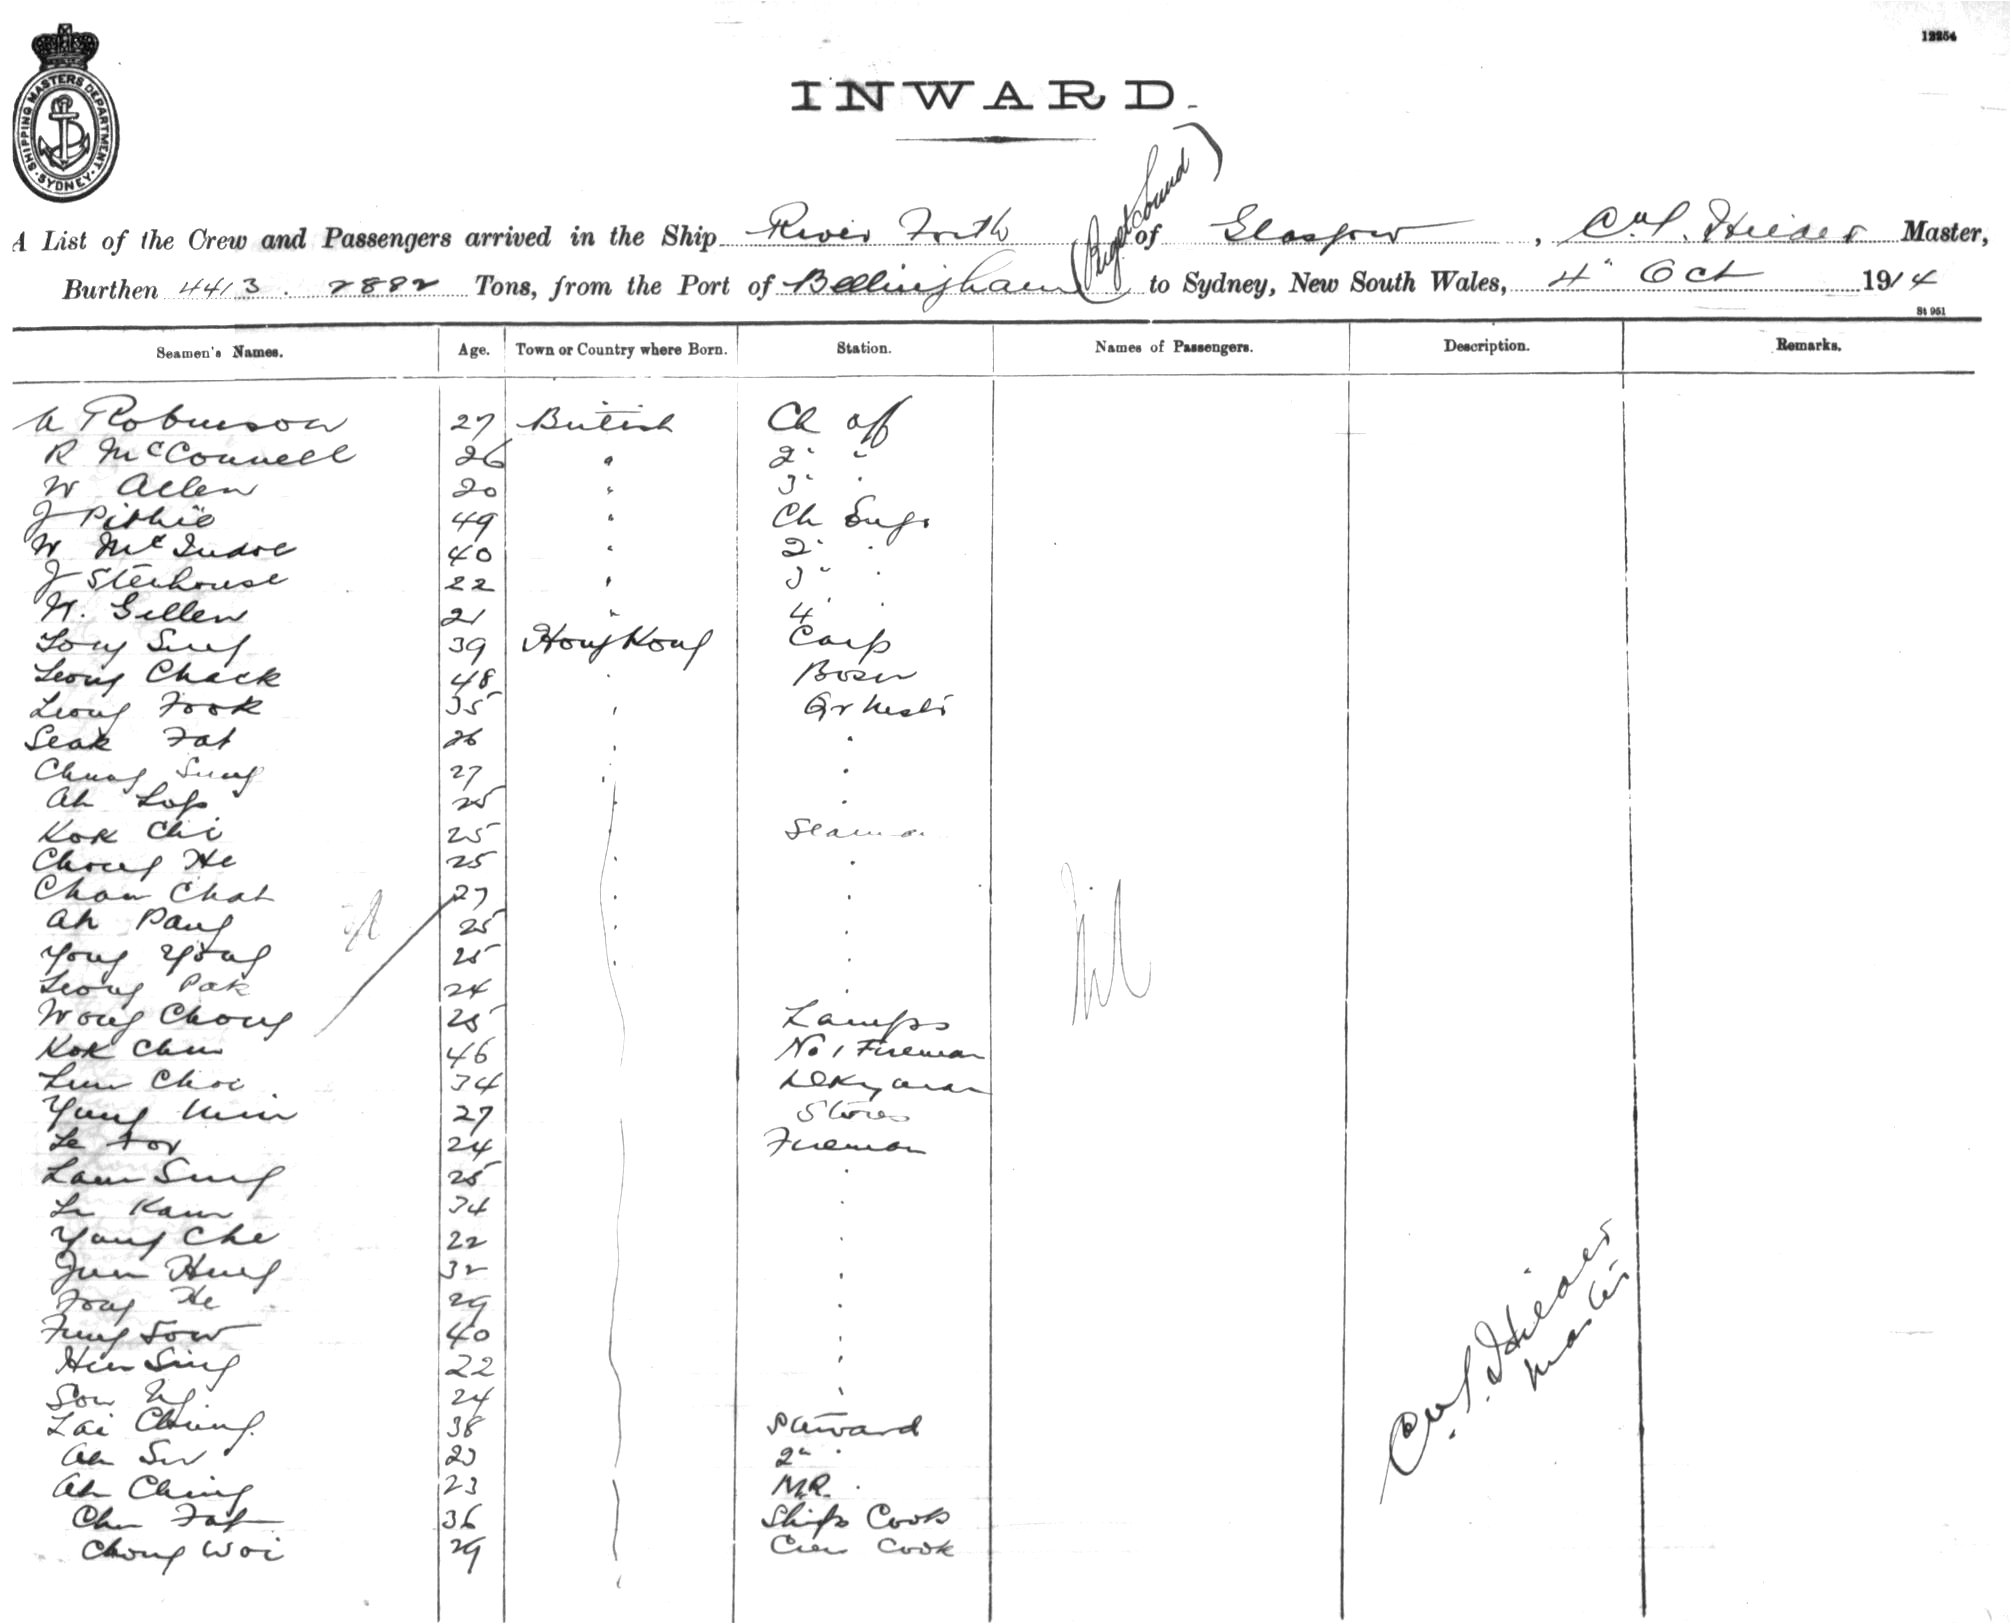 12254
SHIPPING MASTERS DEPARTMENT · SYDNEY ·
INWARD.
A List of the Crew and Passengers arrived in the Ship River Forth (Puget Sound) of Glasgow, Master,
Burthen 4413. 2882 Tons, from the Port of Bellingham to Sydney, New South Wales, 4" Oct 1914
St 951
Seamen's Names. Age. Town or Country where Born. Station. Names of Passengers. Description. Remarks.
Robinson 27 British Ch off
R McConnell 26 " 2" "
W Allen 20 " 3" "
J Pithie 49 " Ch Engr
W McIndoe 40 " 2" "
J Stenhouse 22 " 3" "
N. Gillen 21 " 4" "
Tong Sing 39 Hong Kong Carp
Leong Chack 48 " Bosn
Leong Fook 35 "
Seak Fat 26 " "
Chung Sung 27 " "
Ah Lop 25 " "
Kok Chi 25 Seaman
Chong He 25 " "
Chan Chat 27 " "
Ah Pang 25 " "
Yong Yong 25 " "
Leong Pak 24 "
Wong Chong 25 Lamps
Kok Chu 46 No 1 Fireman
Lum Choi 34
Yung Min 27 Stores
Le For 24 Fireman
Lam Sung 25 "
Le Kam 34 "
Yung Che 22 "
Hung 32 "
Fong He 29 "
Fung Sow 40 "
Hin Sing 22 "
Sow Ng 24 "
Lai Chung 38 Steward
Ah Su 23 2" "
Ah Ching 23 M.R. "
Chu Fat 36 Ships Cook
Chong Woi 29 Crew Cook
Nil
Master